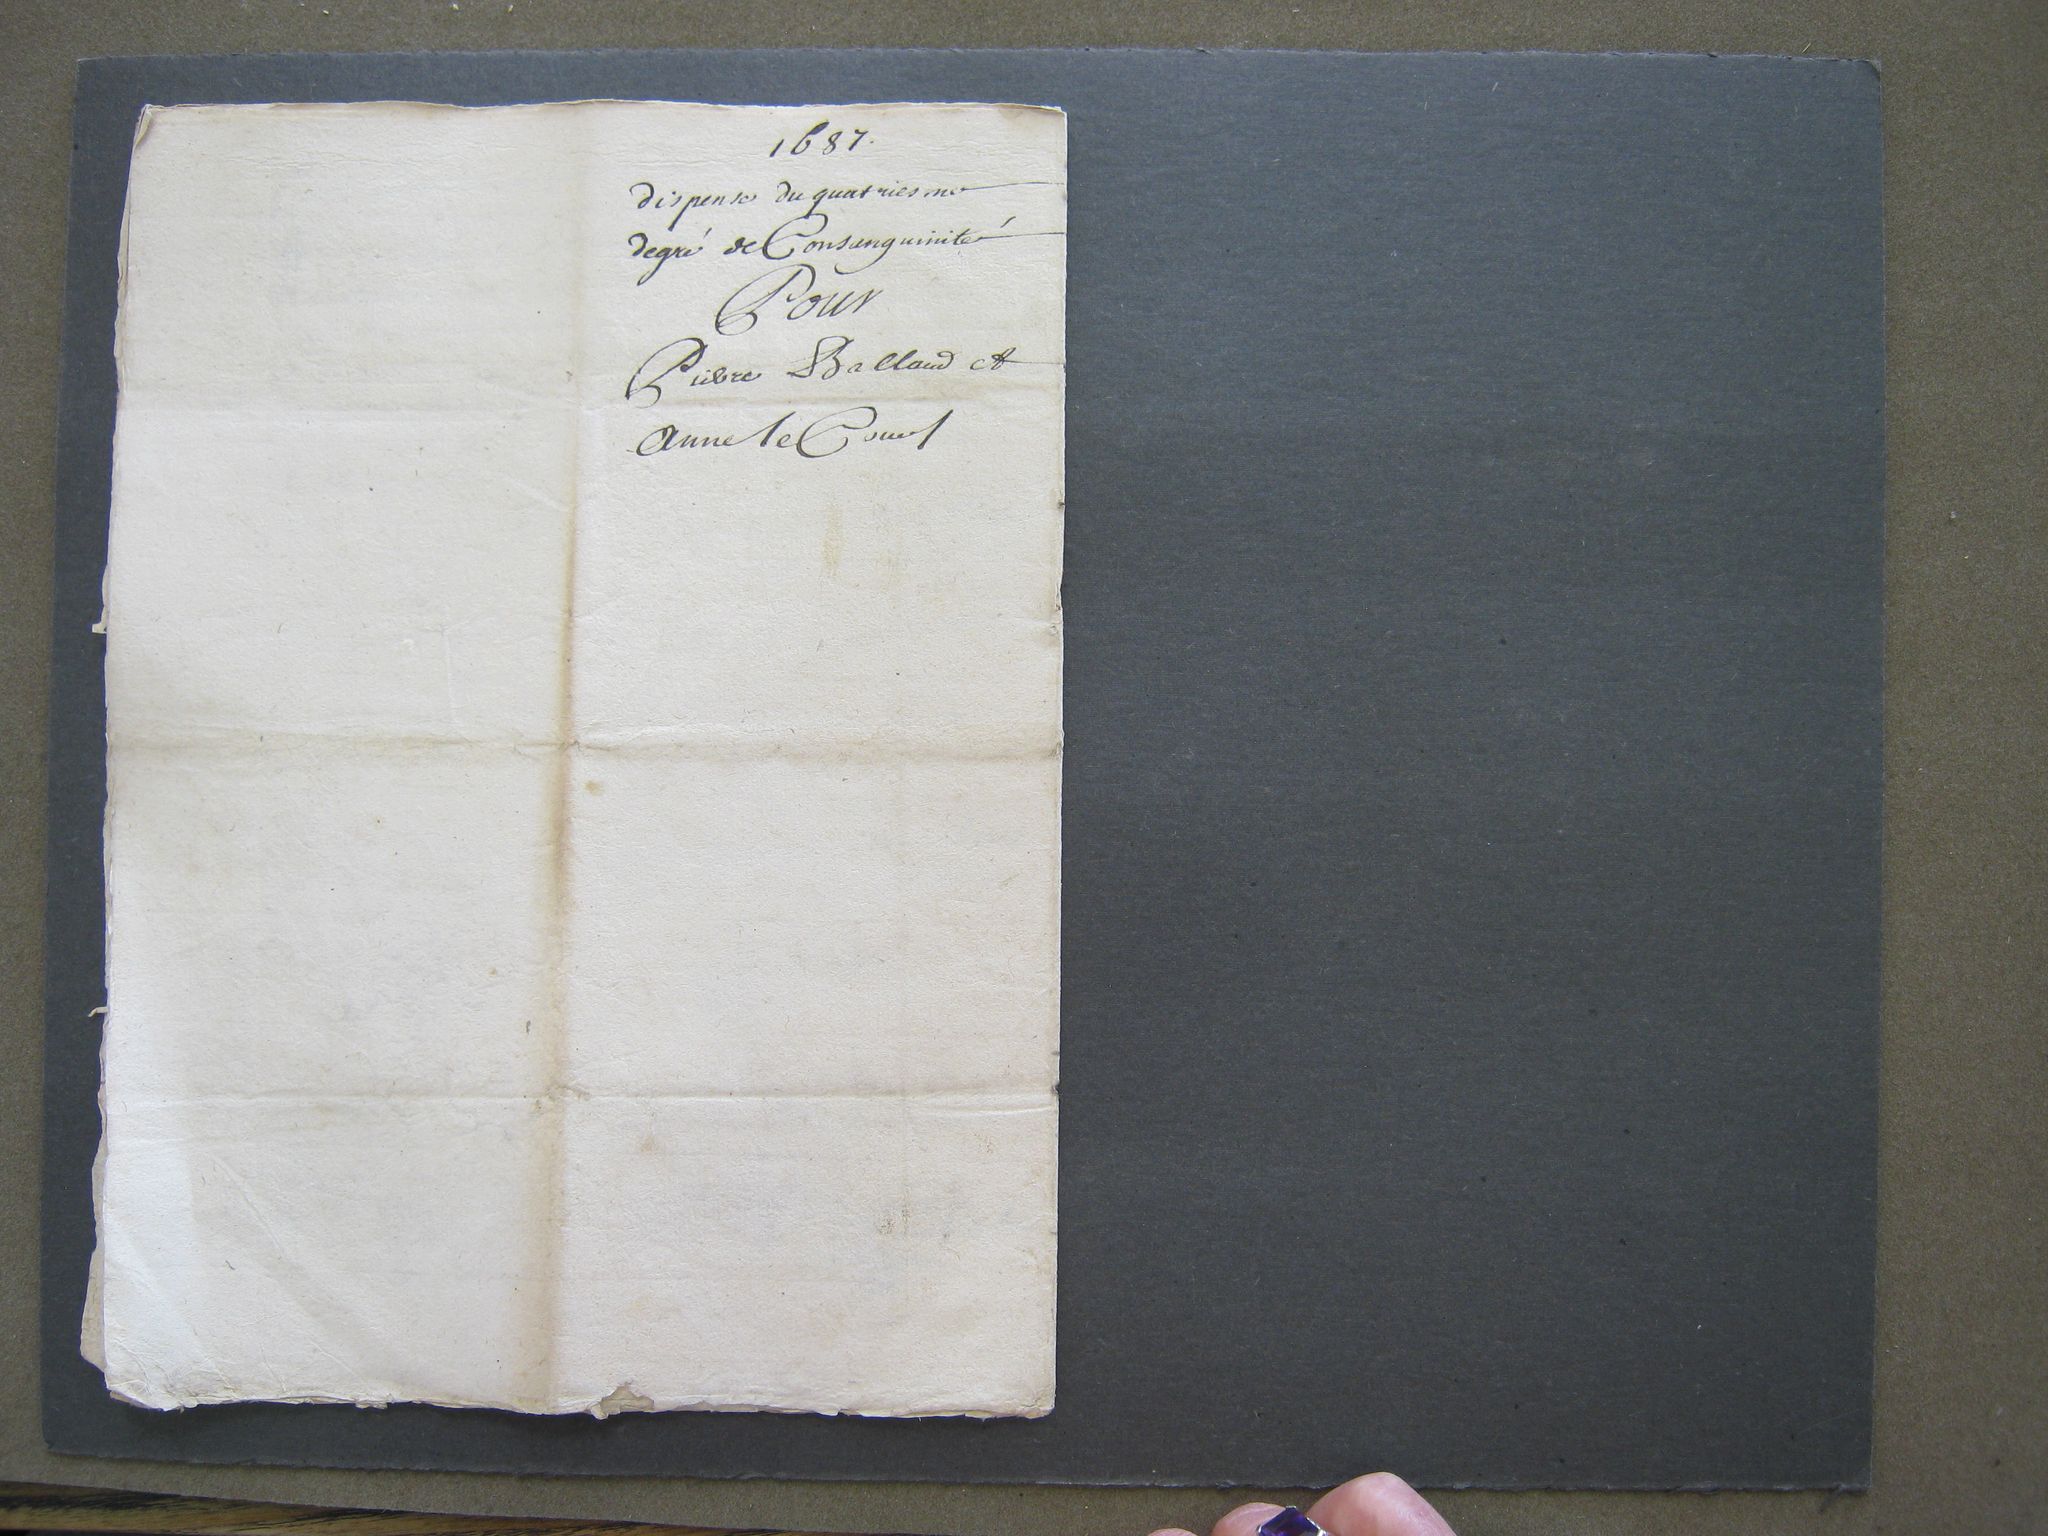 1687.
dispense du quatriesme
degré de Consanguinité
Pour
Pierre Ballaud et
Anne le